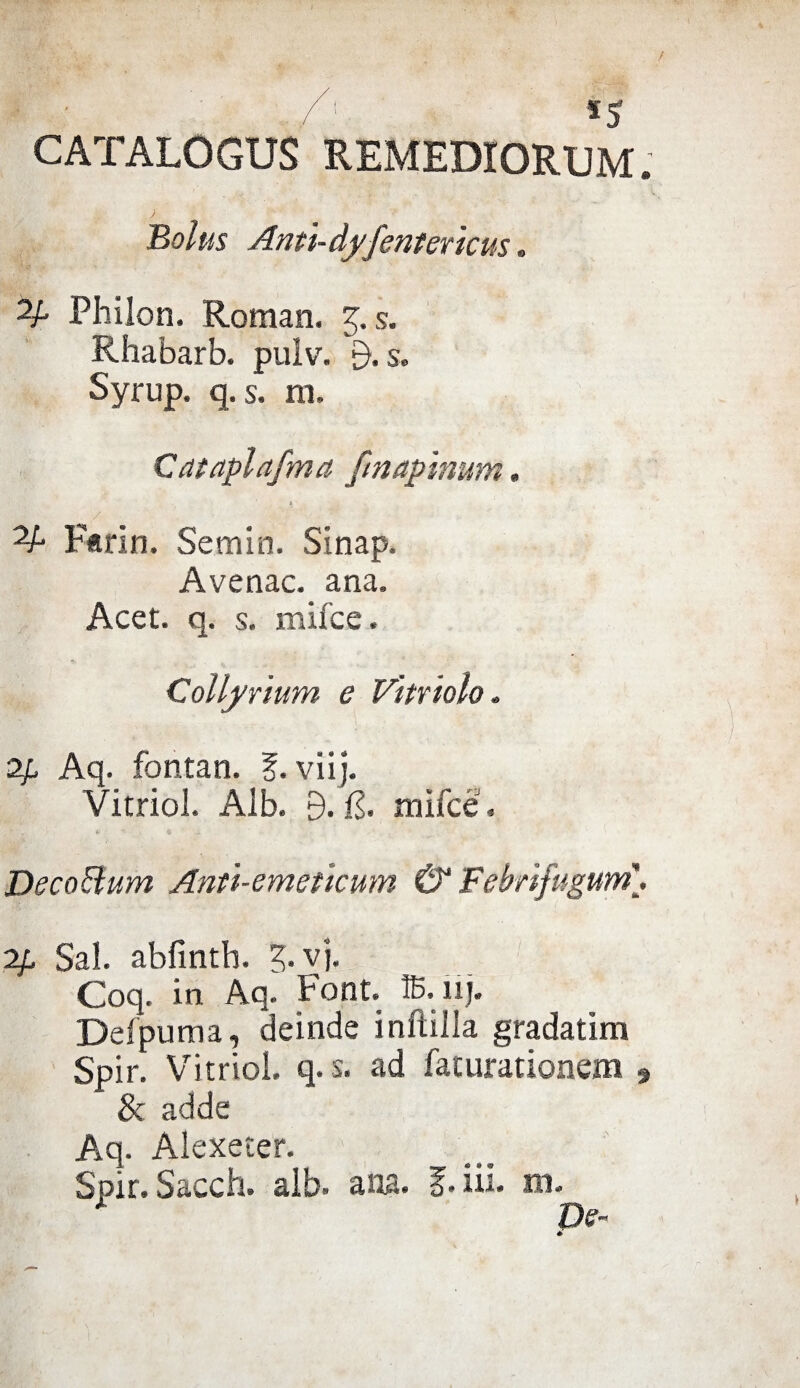 15
CATALOGUS REMEDIORUM.
Bolus Anti-dyſentericus.
℞ Philon. Roman. ʒ. s.
Rhabarb. pulv. ℈. s.
Syrup. q. s. m.
Cataplaſma ſinapinum.
℞ Farin. Semin. Sinap.
Avenac. ana.
Acet. q. s. miſce.
Collyrium e Vitriolo.
℞ Aq. fontan. ℥. viij.
Vitriol. Alb. ℈. ß. miſce.
Decoctum Anti-emeticum & Febrifugum.
℞ Sal. abſinth. ʒ. vj.
Coq. in Aq. Font. ℔. iij.
Deſpuma, deinde inſtilla gradatim
Spir. Vitriol. q. s. ad ſaturationem,
& adde
Aq. Alexeter.
Spir. Sacch. alb. ana. ℥. iii. m.
De-